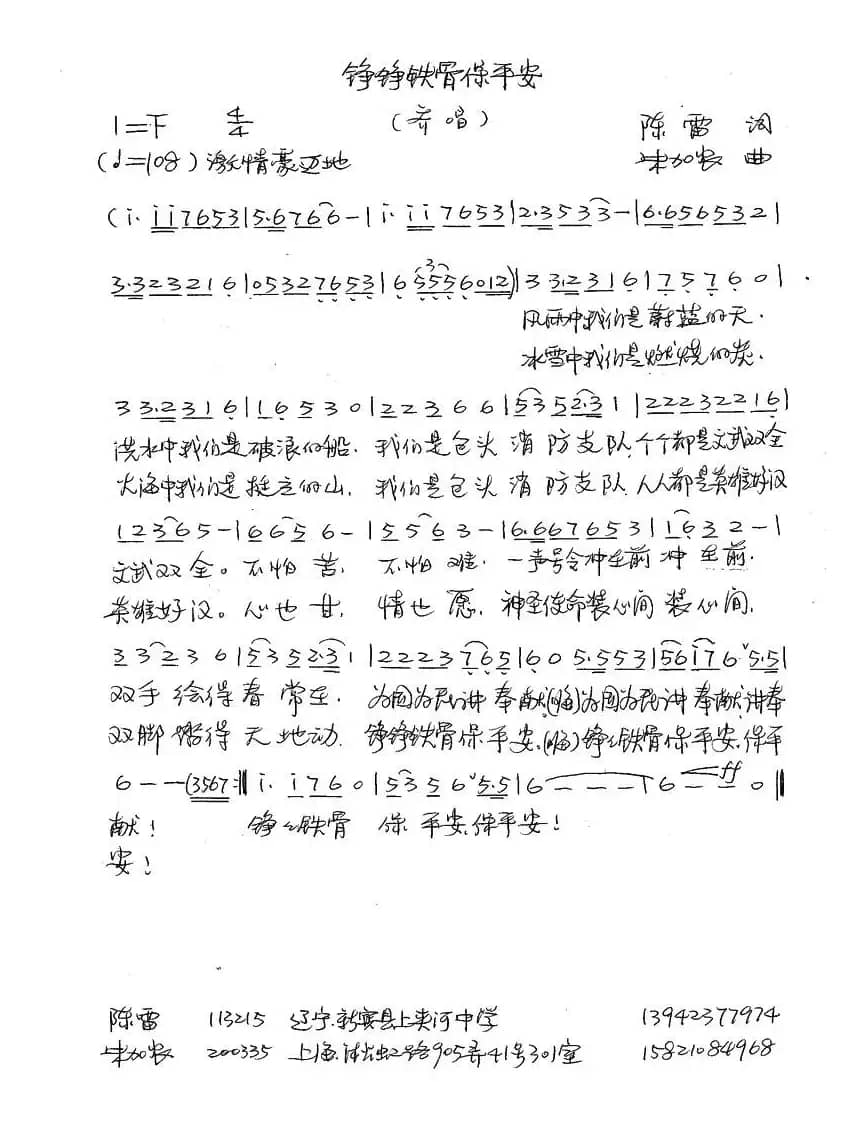 铮铮铁骨保平安
(齐唱)
1=F 4/4 陈雷 词
(♩=108) 激情豪迈地 朱加农 曲
(i· i i 7 6 5 3 | 5·6 7 6 6 - | i· i i 7 6 5 3 | 2·3 5 3 3 - | 6·6 5 6 5 3 2 |
3·3 2 3 2 1 6 | 0 5 3 2 7 6 5 3 | 6 5 5 5 6 0 1 2) | 3 3 3·2 3 1 6 | 7 5 7 6 0 |
风雨中我们是蔚蓝的天.
冰雪中我们是燃烧的炭.
3 3·2 3 1 6 | 1 6 5 3 0 | 2 2 3 6 6 | 5 3 5 2·3 1 | 2 2 2 3 2 2 1 6 |
洪水中我们是破浪的船. 我们是包头 消 防支队个个都是文武双全
大海中我们是挺立的山. 我们是包头 消 防支队.人人都是英雄好汉
1 2 3 6 5 - | 6 6 5 6 - | 5 5 6 3 - | 6·6 6 7 6 5 3 | 1 6 3 2 - |
文武双全。不怕 苦. 不怕 难. 一声号令冲在前 冲 在前.
英雄好汉。心也 甘. 情也 愿. 神圣使命装心间 装心间.
3 3 2 3 6 | 5 3 5 2·3 1 | 2 2 2 3 7 6 5 | 6 0 5·5 5 3 | 5 6 i 7 6 ˅5·5 |
双手 绘得春 常在. 为国为民讲 奉献(嗨)为国为民讲 奉献讲奉
双脚 踏得 天 地动. 铮铮铁骨保平安.(嗨)铮々铁骨保平安.保平
6 - - (3567 :‖ i· i 7 6 0 | 5 3 5 6 ˅5·5 | 6 - - - | 6 - - 0 ‖ ff
献! 铮々铁骨 保 平安.保平安!
安!
陈雷 113215 辽宁.新宾县上夹河中学 13942377974
朱加农 200335 上海.淞虹路905弄41号301室 15821084968